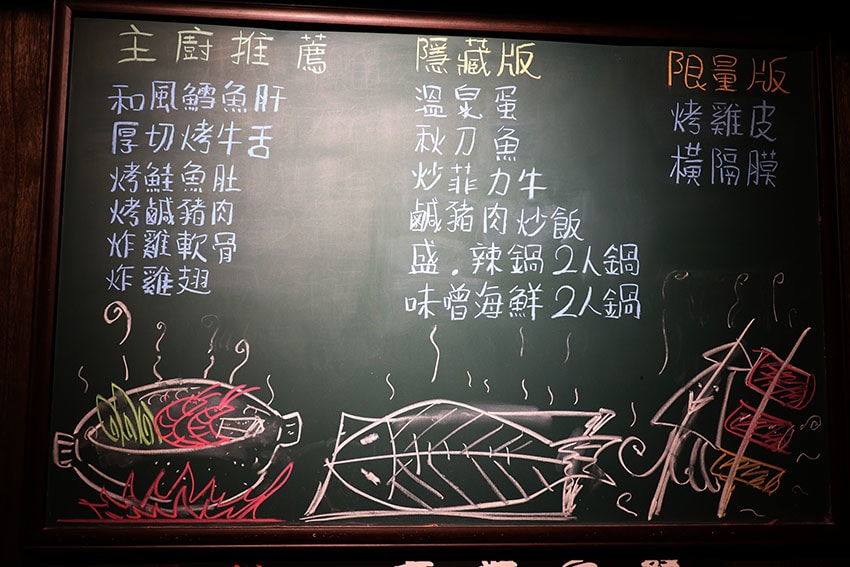 主廚推薦
和風鱈魚肝
厚切烤牛舌
烤鮭魚肚
烤鹹豬肉
炸雞軟骨
炸雞翅
隱藏版
溫泉蛋
秋刀魚
炒菲力牛
鹹豬肉炒飯
盛.辣鍋2人鍋
味噌海鮮2人鍋
限量版
烤雞皮
橫隔膜